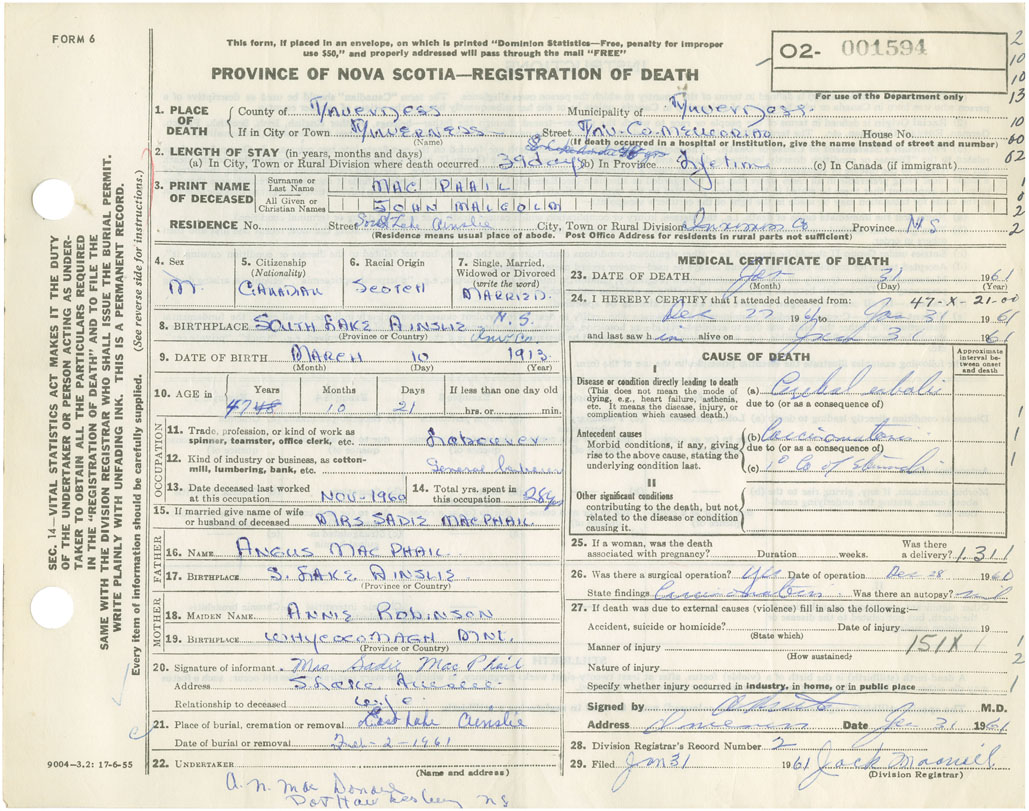 FORM 6
This form, if placed in an envelope, on which is printed "Dominion Statistics—Free, penalty for improper
use $50," and properly addressed will pass through the mail "FREE"
O2- 001594
PROVINCE OF NOVA SCOTIA—REGISTRATION OF DEATH
For use of the Department only
2
10
10
13
10
60
62
1. PLACE OF DEATH
County of Inverness Municipality of Inverness.
If in City or Town Inverness Street Inv. Co. Memorial House No.
(Name) (If death occurred in a hospital or Institution, give the name instead of street and number)
2. LENGTH OF STAY (in years, months and days)
(a) In City, Town or Rural Division where death occurred 39 days (b) In Province Lifetime (c) In Canada (if immigrant)
3. PRINT NAME OF DECEASED
Surname or Last Name MAC PHAIL
All Given or Christian Names JOHN MALCOLM
RESIDENCE No. Street South Lake Ainslie City, Town or Rural Division Inverness Co Province N S
(Residence means usual place of abode. Post Office Address for residents in rural parts not sufficient)
4. Sex M.
5. Citizenship (Nationality) Canadian
6. Racial Origin Scotch
7. Single, Married, Widowed or Divorced (write the word) Married.
8. BIRTHPLACE South Lake Ainslie N.S. Inv Co.
(Province or Country)
9. DATE OF BIRTH March 10 1913
(Month) (Day) (Year)
10. AGE in Years 47 48 Months 10 Days 21 If less than one day old hrs. or min.
OCCUPATION
11. Trade, profession, or kind of work as spinner, teamster, office clerk, etc. Labourer
12. Kind of industry or business, as cotton-mill, lumbering, bank, etc. General
13. Date deceased last worked at this occupation Nov-1960
14. Total yrs. spent in this occupation 28 yrs
15. If married give name of wife or husband of deceased Mrs Sadie MacPhail.
FATHER
16. NAME Angus Mac Phail
17. BIRTHPLACE S. Lake Ainslie
(Province or Country)
MOTHER
18. MAIDEN NAME Annie Robinson
19. BIRTHPLACE Whycocomagh Mnt.
(Province or Country)
20. Signature of informant Mrs Sadie Mac Phail
Address S. Lake Ainslie
Relationship to deceased wife
21. Place of burial, cremation or removal East Lake Ainslie
Date of burial or removal Feb-2-1961
22. UNDERTAKER
(Name and address)
A. N. Mac Donald
Port Hawkesbury NS
9004—3.2: 17-6-55
MEDICAL CERTIFICATE OF DEATH
23. DATE OF DEATH Jan 31 1961
(Month) (Day) (Year)
47-X-21-00
24. I HEREBY CERTIFY that I attended deceased from:
Dec 27 1960 to Jan 31 1961
and last saw him alive on Jan 31 1961
CAUSE OF DEATH
Approximate interval between onset and death
I
Disease or condition directly leading to death
(This does not mean the mode of dying, e.g., heart failure, asthenia, etc. It means the disease, injury, or complication which caused death.)
(a) Cerebral emboli
due to (or as a consequence of)
Antecedent causes
Morbid conditions, if any, giving rise to the above cause, stating the underlying condition last.
(b) Carcinomatosis
due to (or as a consequence of)
(c) 1° Ca of Stomach
II
Other significant conditions
contributing to the death, but not related to the disease or condition causing it.
25. If a woman, was the death associated with pregnancy? Duration weeks. Was there a delivery? 1.311
26. Was there a surgical operation? Yes Date of operation Dec 28 1960
State findings Was there an autopsy?
27. If death was due to external causes (violence) fill in also the following:—
Accident, suicide or homicide? Date of injury 19
(State which)
Manner of injury 151X1
(How sustained)
Nature of injury
Specify whether injury occurred in industry, in home, or in public place
Signed by M.D.
Address Inverness Date Jan 31 1961
28. Division Registrar's Record Number 2
29. Filed Jan 31 1961 Jack
(Division Registrar)
SEC. 14—VITAL STATISTICS ACT MAKES IT THE DUTY
OF THE UNDERTAKER OR PERSON ACTING AS UNDER-
TAKER TO OBTAIN ALL THE PARTICULARS REQUIRED
IN THE "REGISTRATION OF DEATH" AND TO FILE THE
SAME WITH THE DIVISION REGISTRAR WHO SHALL ISSUE THE BURIAL PERMIT.
WRITE PLAINLY WITH UNFADING INK. THIS IS A PERMANENT RECORD.
Every item of information should be carefully supplied. (See reverse side for instructions.)